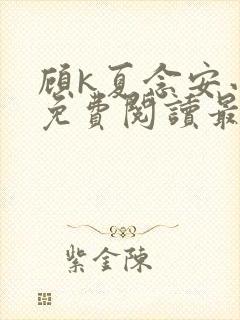 顾K夏念安
免費閱讀最
紫金陳